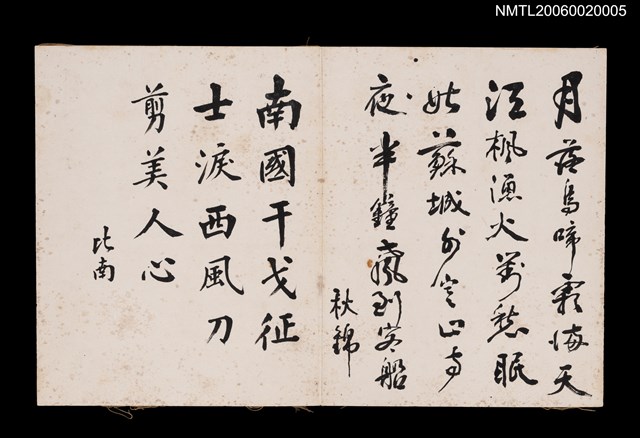 NMTL20060020005
月落烏啼霜海天
江楓漁火對愁眠
姑蘇城外寒山寺
夜半鐘聲到客船
秋錦
南國干戈征
士淚西風刀
剪美人心
比南